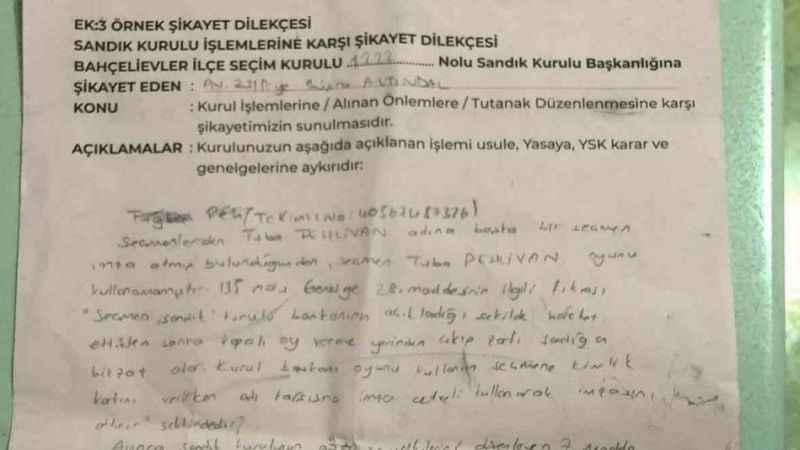 EK:3 ÖRNEK ŞİKAYET DİLEKÇESİ
SANDIK KURULU İŞLEMLERİNE KARŞI ŞİKAYET DİLEKÇESİ
BAHÇELİEVLER İLÇE SEÇİM KURULU .1222............ Nolu Sandık Kurulu Başkanlığına
ŞİKAYET EDEN : Av. ALTINDAL
KONU : Kurul İşlemlerine / Alınan Önlemlere / Tutanak Düzenlenmesine karşı
şikayetimizin sunulmasıdır.
AÇIKLAMALAR : Kurulunuzun aşağıda açıklanan işlemi usule, Yasaya, YSK karar ve
genelgelerine aykırıdır:
Seçmenlerden Tuba PEHLİVAN adına başka bir seçmen
imza atmış bulunduğundan, seçmen Tuba PEHLİVAN oyunu
kullanamamıştır. 135 nolu Genelge 28. maddesinin ilgili fıkrası
"Seçmen, sandık kurulu başkanının açıkladığı şekilde hareket
ettikten sonra kapalı oy verme yerinden çıkıp zarfı sandığa
bizzat atar. Kurul başkanı oyunu kullanan seçmene kimlik
kartını verirken adı karşısına imza cetveli kullanarak imzasını
attırır" şeklindedir.
Ayrıca sandık kurulunun düzenleyen 7.